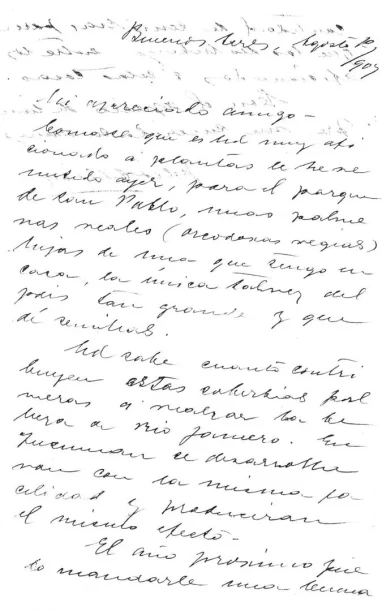 Buenos Aires, Agosto 10,
1907
Mi apreciado amigo -
Como sé que es Ud muy afi
cionado a plantas le he re
mitido ayer, para el parque
de San Pablo, unas palme
ras reales (oreodoxas regias)
hijas de una que tengo en
casa, la única talvez del
país tan grande y que
dé semillas.
Ud sabe cuanto contri
buyen estas soberbias pal
meras a realzar la be
lleza de Rio Janeiro. En
Tucuman se desarrolla
rian con la misma fa
cilidad y producirian
el mismo efecto -
El año proximo
mandarle una